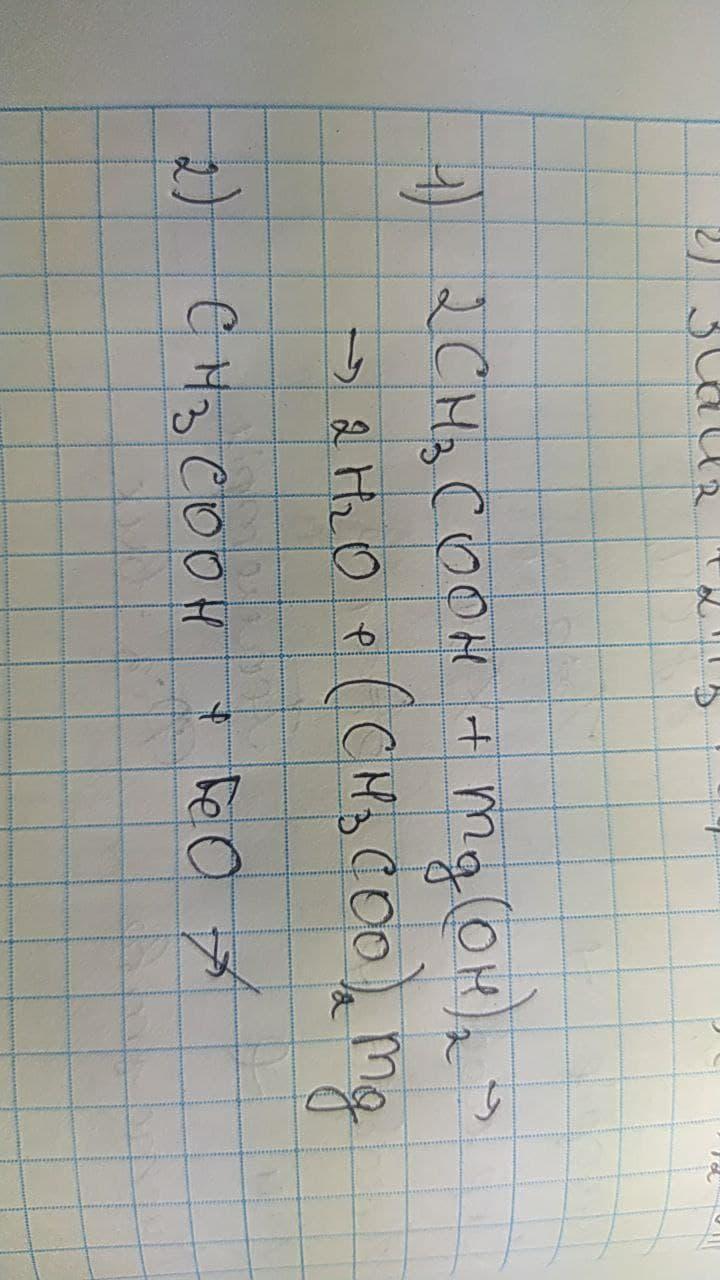 1) 2CH₃COOH + Mg(OH)₂ →
→ 2H₂O + (CH₃COO)₂Mg
2) CH₃COOH + FeO ↛